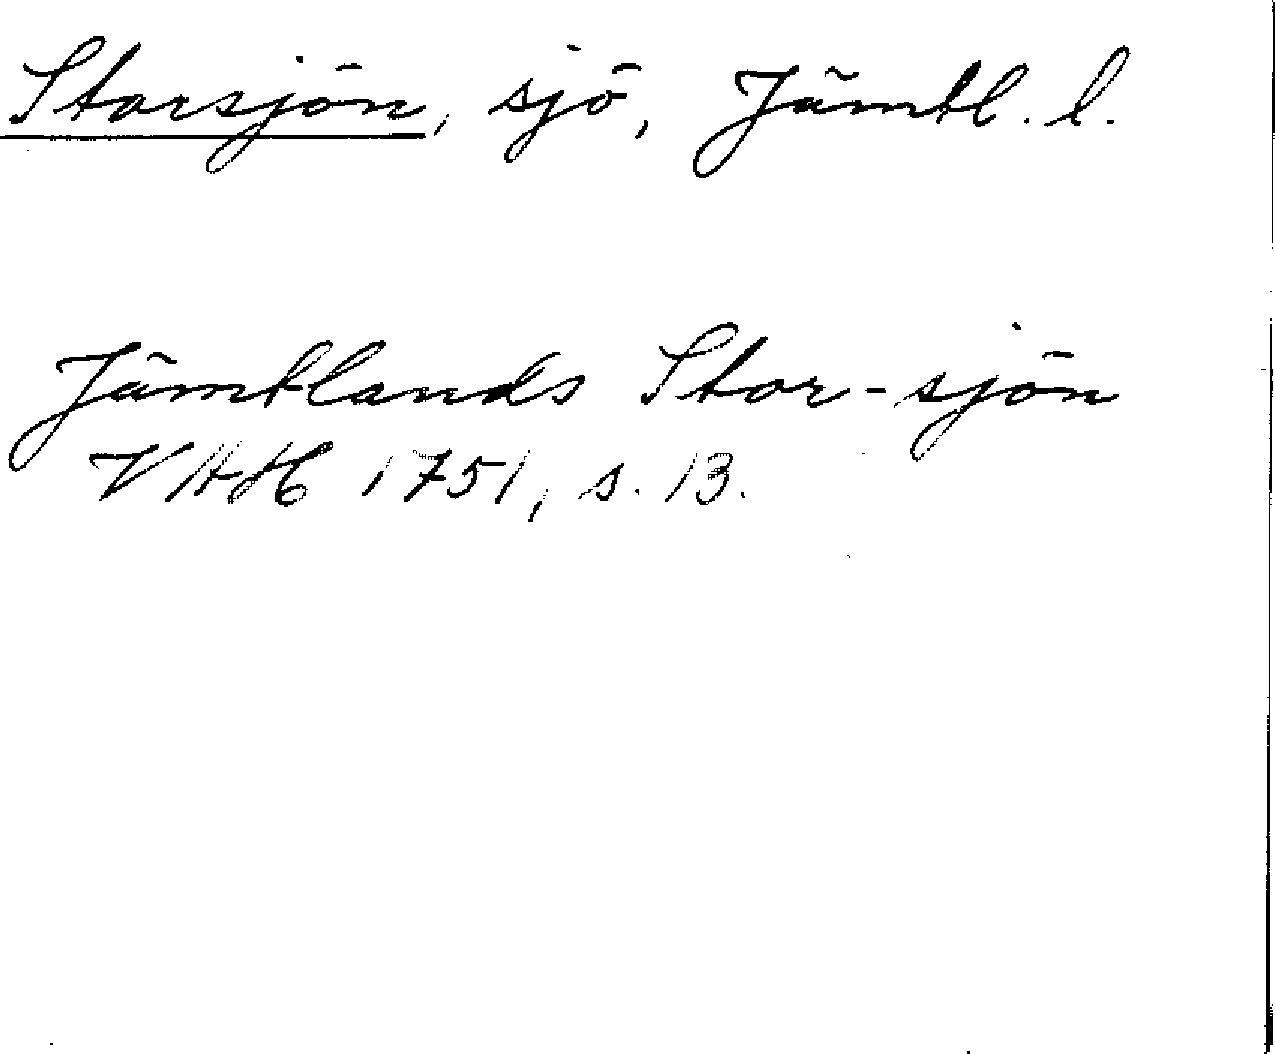 Storsjön, sjö, Jämtl. l.
Jämtlands Stor-sjön
VAH 1751, s. 13.